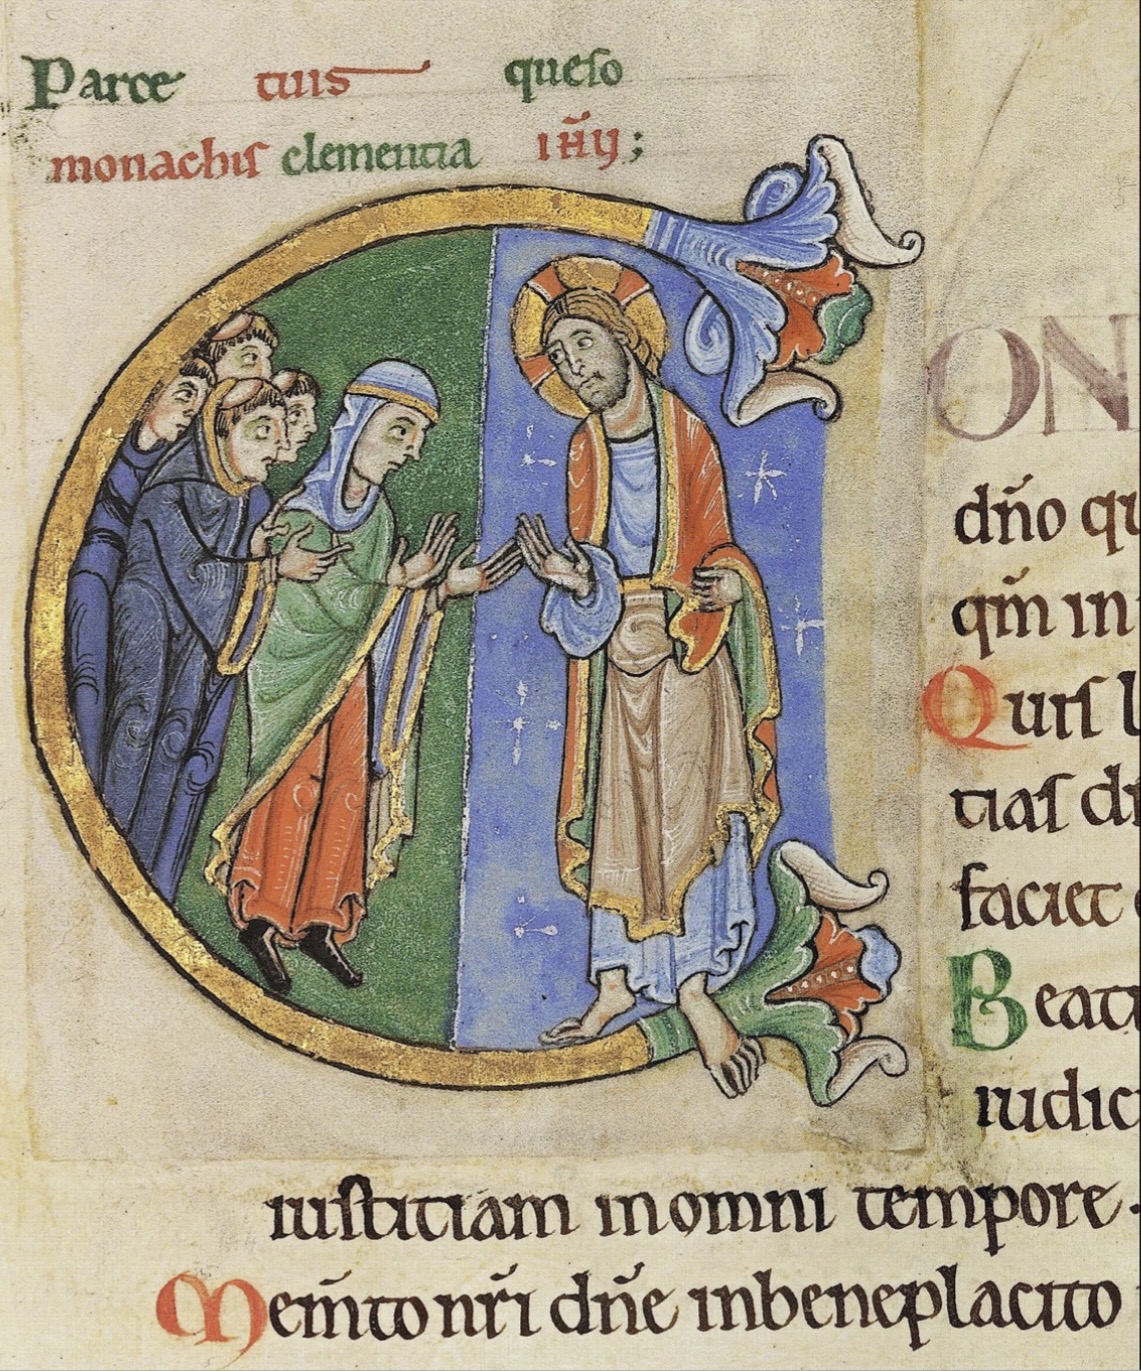 Parce tuis queſo
monachiſ clementia ıh̄ỹ;
ON
dn̄o qu
qm̄ in
Quiſ l
tiaſ di
faciet
Beati
iudici
iuſtitiam in omni tempore.
Mem̄to nr̄i dn̄e in beneplacito